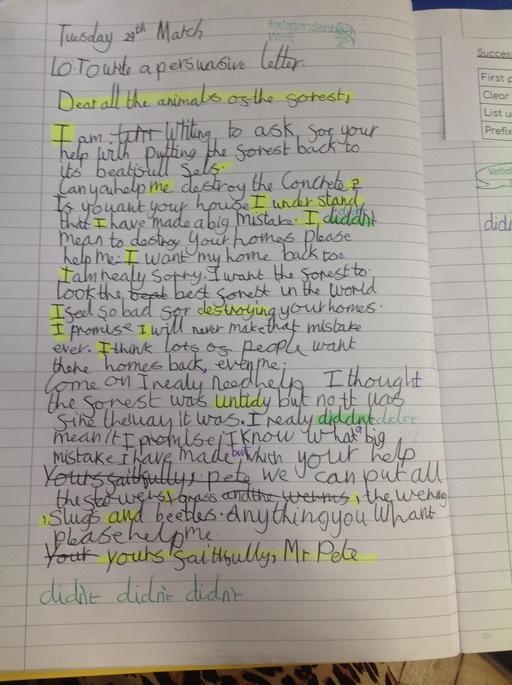 Tuesday 29th March
Independent Work
LO: To write a persuasive letter.
Dear all the animals of the forest,
I am writing to ask for your
help with putting the forest back to
its beatifull self.
Can you help me destroy the Concrete?
If you want your house I understand
that I have made a big mistake. I diddn't
mean to destroy your homes please
help me. I want my home back too.
I am realy sorry. I want the forest to
look the best best forest in the world
I feel so bad for destroying your homes.
I promise I will never make that mistake
ever. I think lots of people want
there homes back, even me.
Come on I realy need help I thought
the forrest was untidy but no it was
fine the way it was. I realy diddnt didn't
mean it I promise I know what a big
mistake I have made but which your help
Yours faithfully, pete we can put all
the flowers, grass and the werms, the werms
, Slugs and beetles. Anything you whant
please help me
Your yours faithfully, Mr Pete
didn't didn't didn't
Success
First p
Clear
List u
Prefix
Verbal
didn